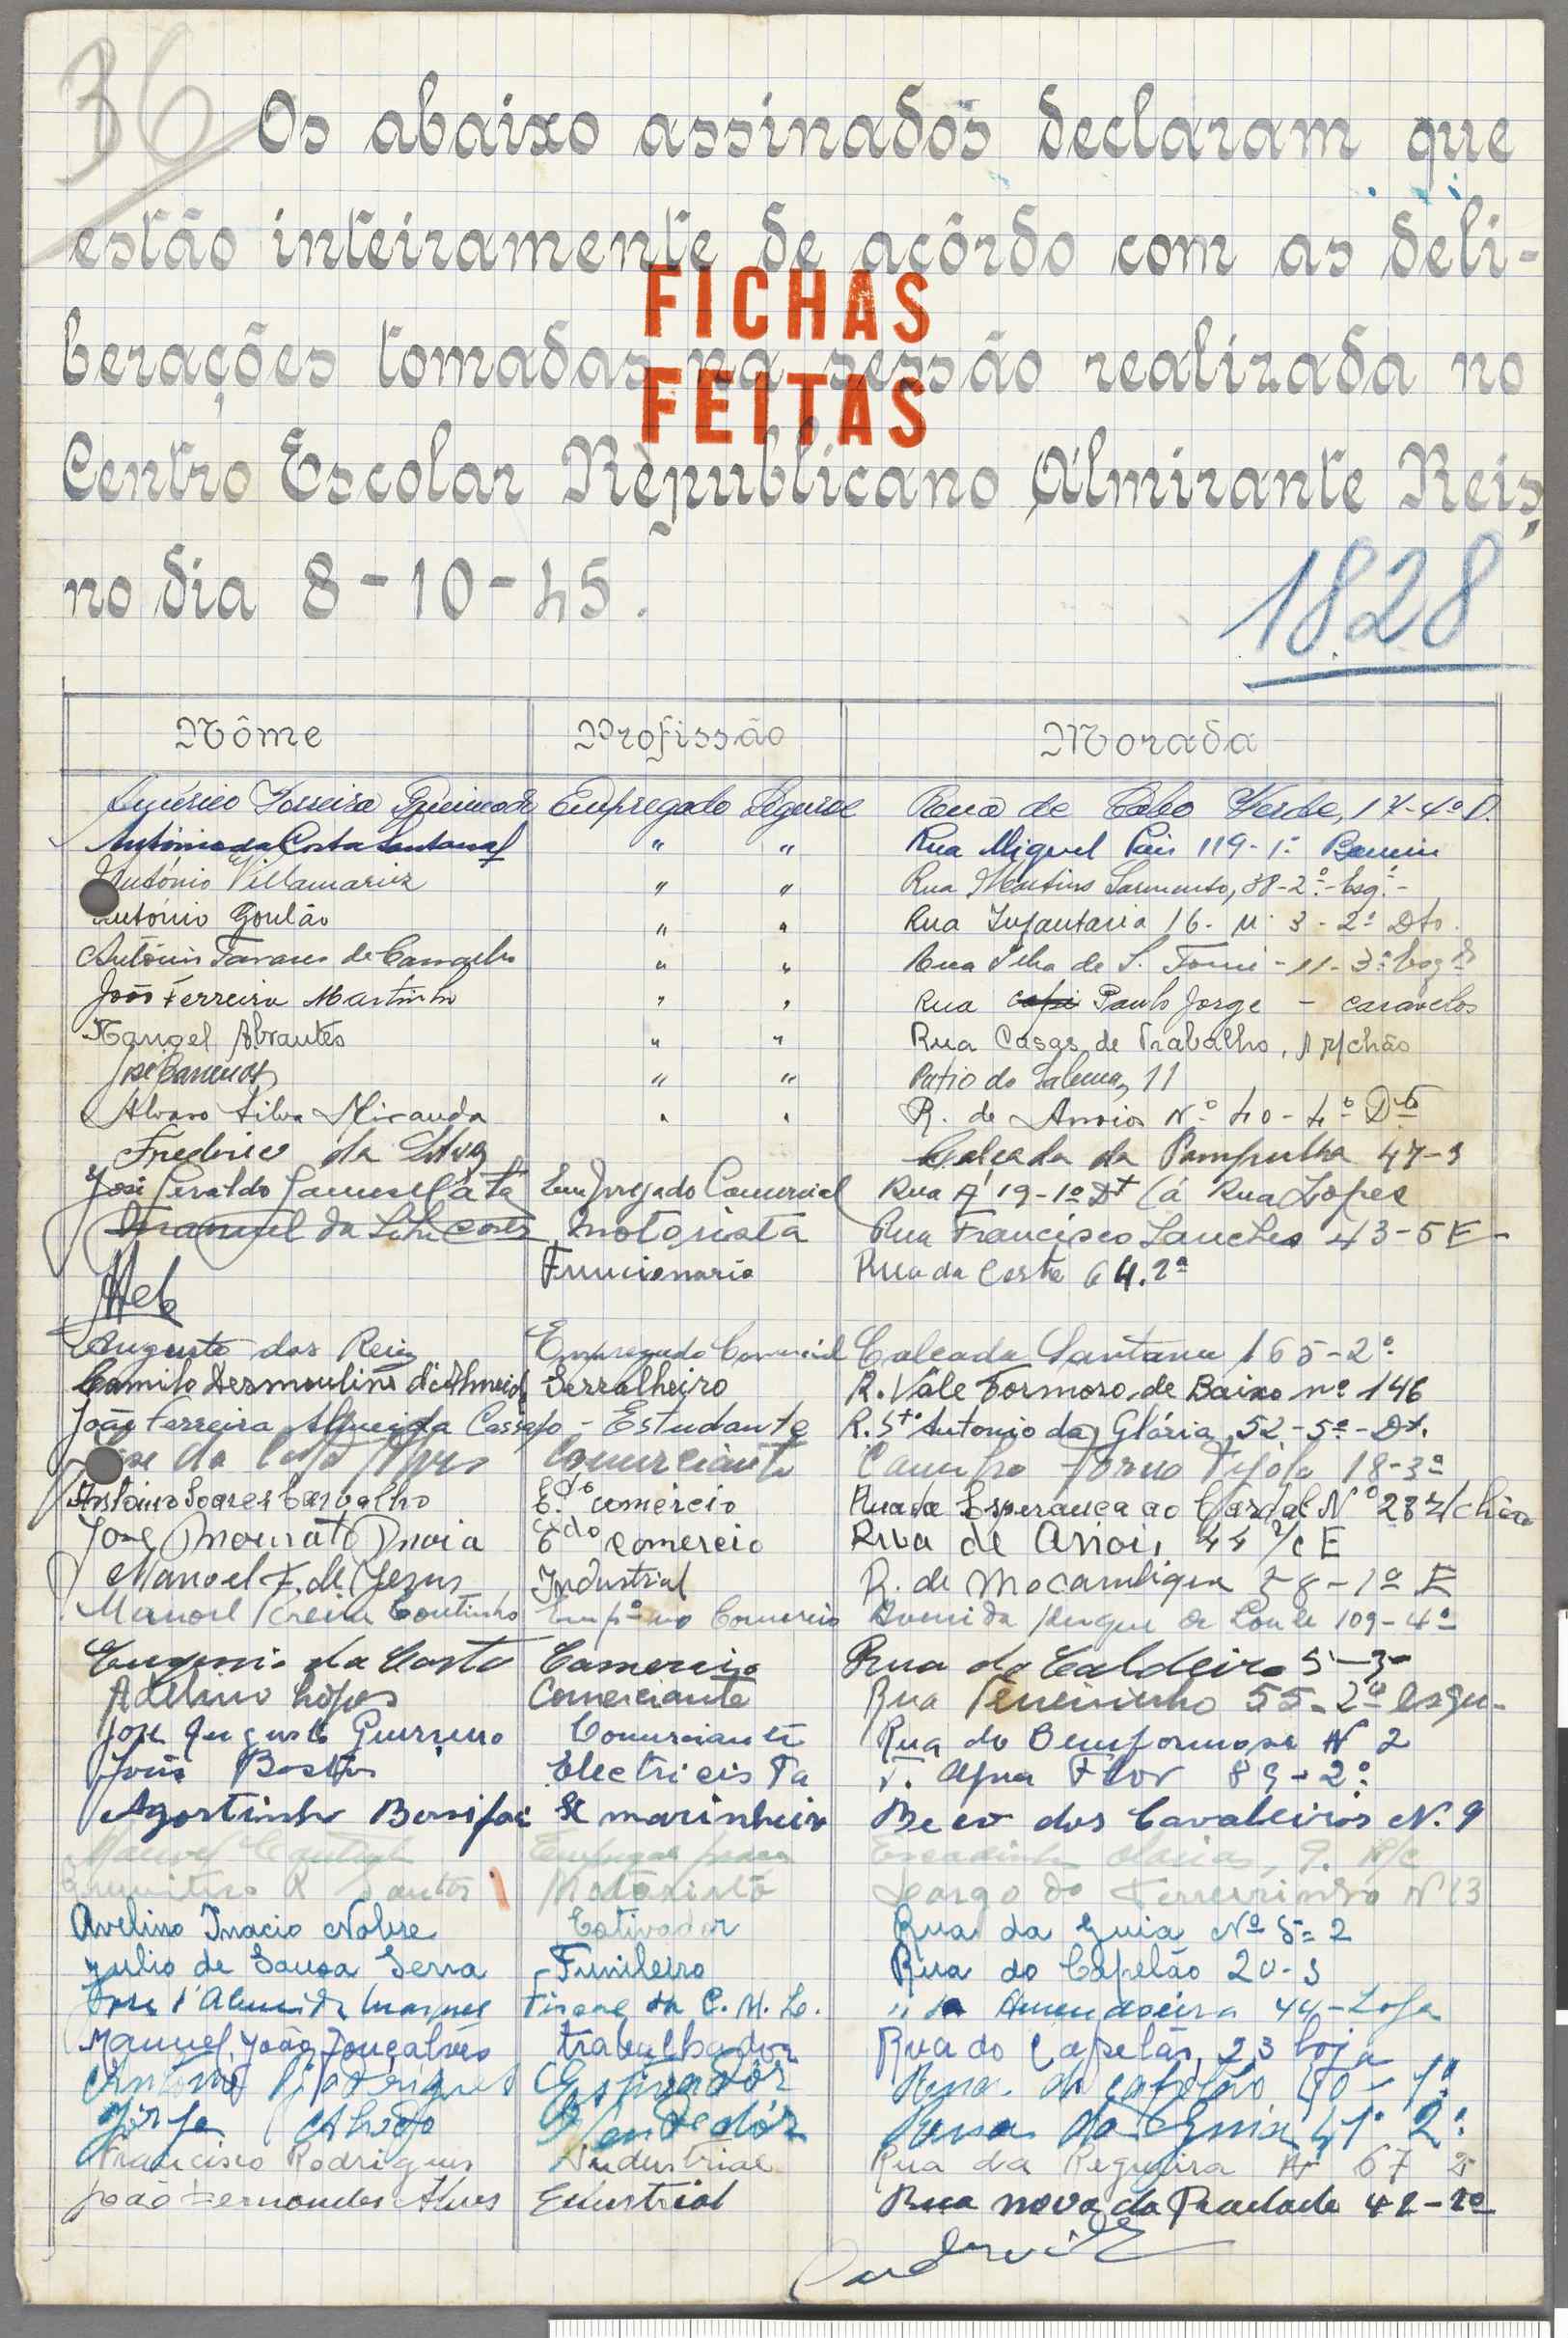 36
Os abaixo assinados declaram que
estão inteiramente de acôrdo com as deli-
berações tomadas na sessão realizada no
FICHAS
FEITAS
Centro Escolar Republicano Almirante Reis,
no dia 8-10-45.
1828
Nôme Profissão Morada
Empregado Rua de Cabo Verde, 17-4º D.
António da Costa " " Rua Miguel Pais 119-1º
António Villamariz " " Rua Martins Sarmento, 38-2º-Esqº-
António Goulão " " Rua Infantaria 16. Nº 3-2º Dto.
António Tavares de " " Rua Ilha de S. Tomé-11-3º Esqº
João Ferreira Martinho " " Rua Paulo Jorge - Caravelos
Rangel Abrantes " " Rua Casas de Trabalho, 1 r/chão
José " " Patio do Salema, 11
Alvaro Silva Miranda " " R. de Arroios Nº 40-4º Dto
Frederico da Silva Calçada da Pampulha 47-3
José Geraldo Empregado Comercial Rua A 19-1º Dt (á Rua Lopes
Manuel da Motorista Rua Francisco Sanches 43-5 E-
Funcionario Rua da 64.2º
Augusto dos Reis Empregado Comercial Calçada Santana 165-2º
Camilo Desmoulins d'Almeida Serralheiro R. Vale Formoso de Baixo nº 146
João Ferreira Almeida - Estudante R. Stº Antonio da Glória 52-5º-Dt.
José da Comerciante Campo Tijolo 18-3º
António Soares Carvalho Edo comércio Rua da Esperança ao Cardal Nº 28 r/chão
José Mourato Edo Comercio Rua de Arroios 44 r/c E
Manoel F. de Jesus Industrial R. de Mocambique 38-1º E
Manoel Coutinho Empº no Comercio Avenida Duque de Loulé 109-4º
Eugenio da Costa Comercio Rua do Caldeira 5-3º
Adelino Lopes Comerciante Rua Terreirinho 55-2º esqu-
José Augusto Guerreiro Comerciante Rua do Bemformoso Nº 2
João Bastos Electricista T. Agua Flor 89-2º
Agostinho marinheiro Beco dos Cavaleiros N. 9
Manuel Escadinhas Olarias, 9. R/c
Santos Motorista Largo do Terreirinho Nº 13
Avelino Inacio Nobre Estivador Rua da Guia Nº 5=2
Julio de Sousa Serra Funileiro Rua do Capelão 20-3
José d'Almeida Marques Fiscal da C. M. L. " da Amendoeira 44-Loja
Manuel João Gonçalves trabalhador Rua do Capelão, 23 loja
António Rodrigues Estivadôr Rua do Capelão 40-1º
Jorge Vendedôr Rua da Guia 2º
Francisco Rodrigues Industrial Rua da Regueira Nº 67 2º
João Fernandes Alves Edustrial Rua nova da Piedade 42-2º